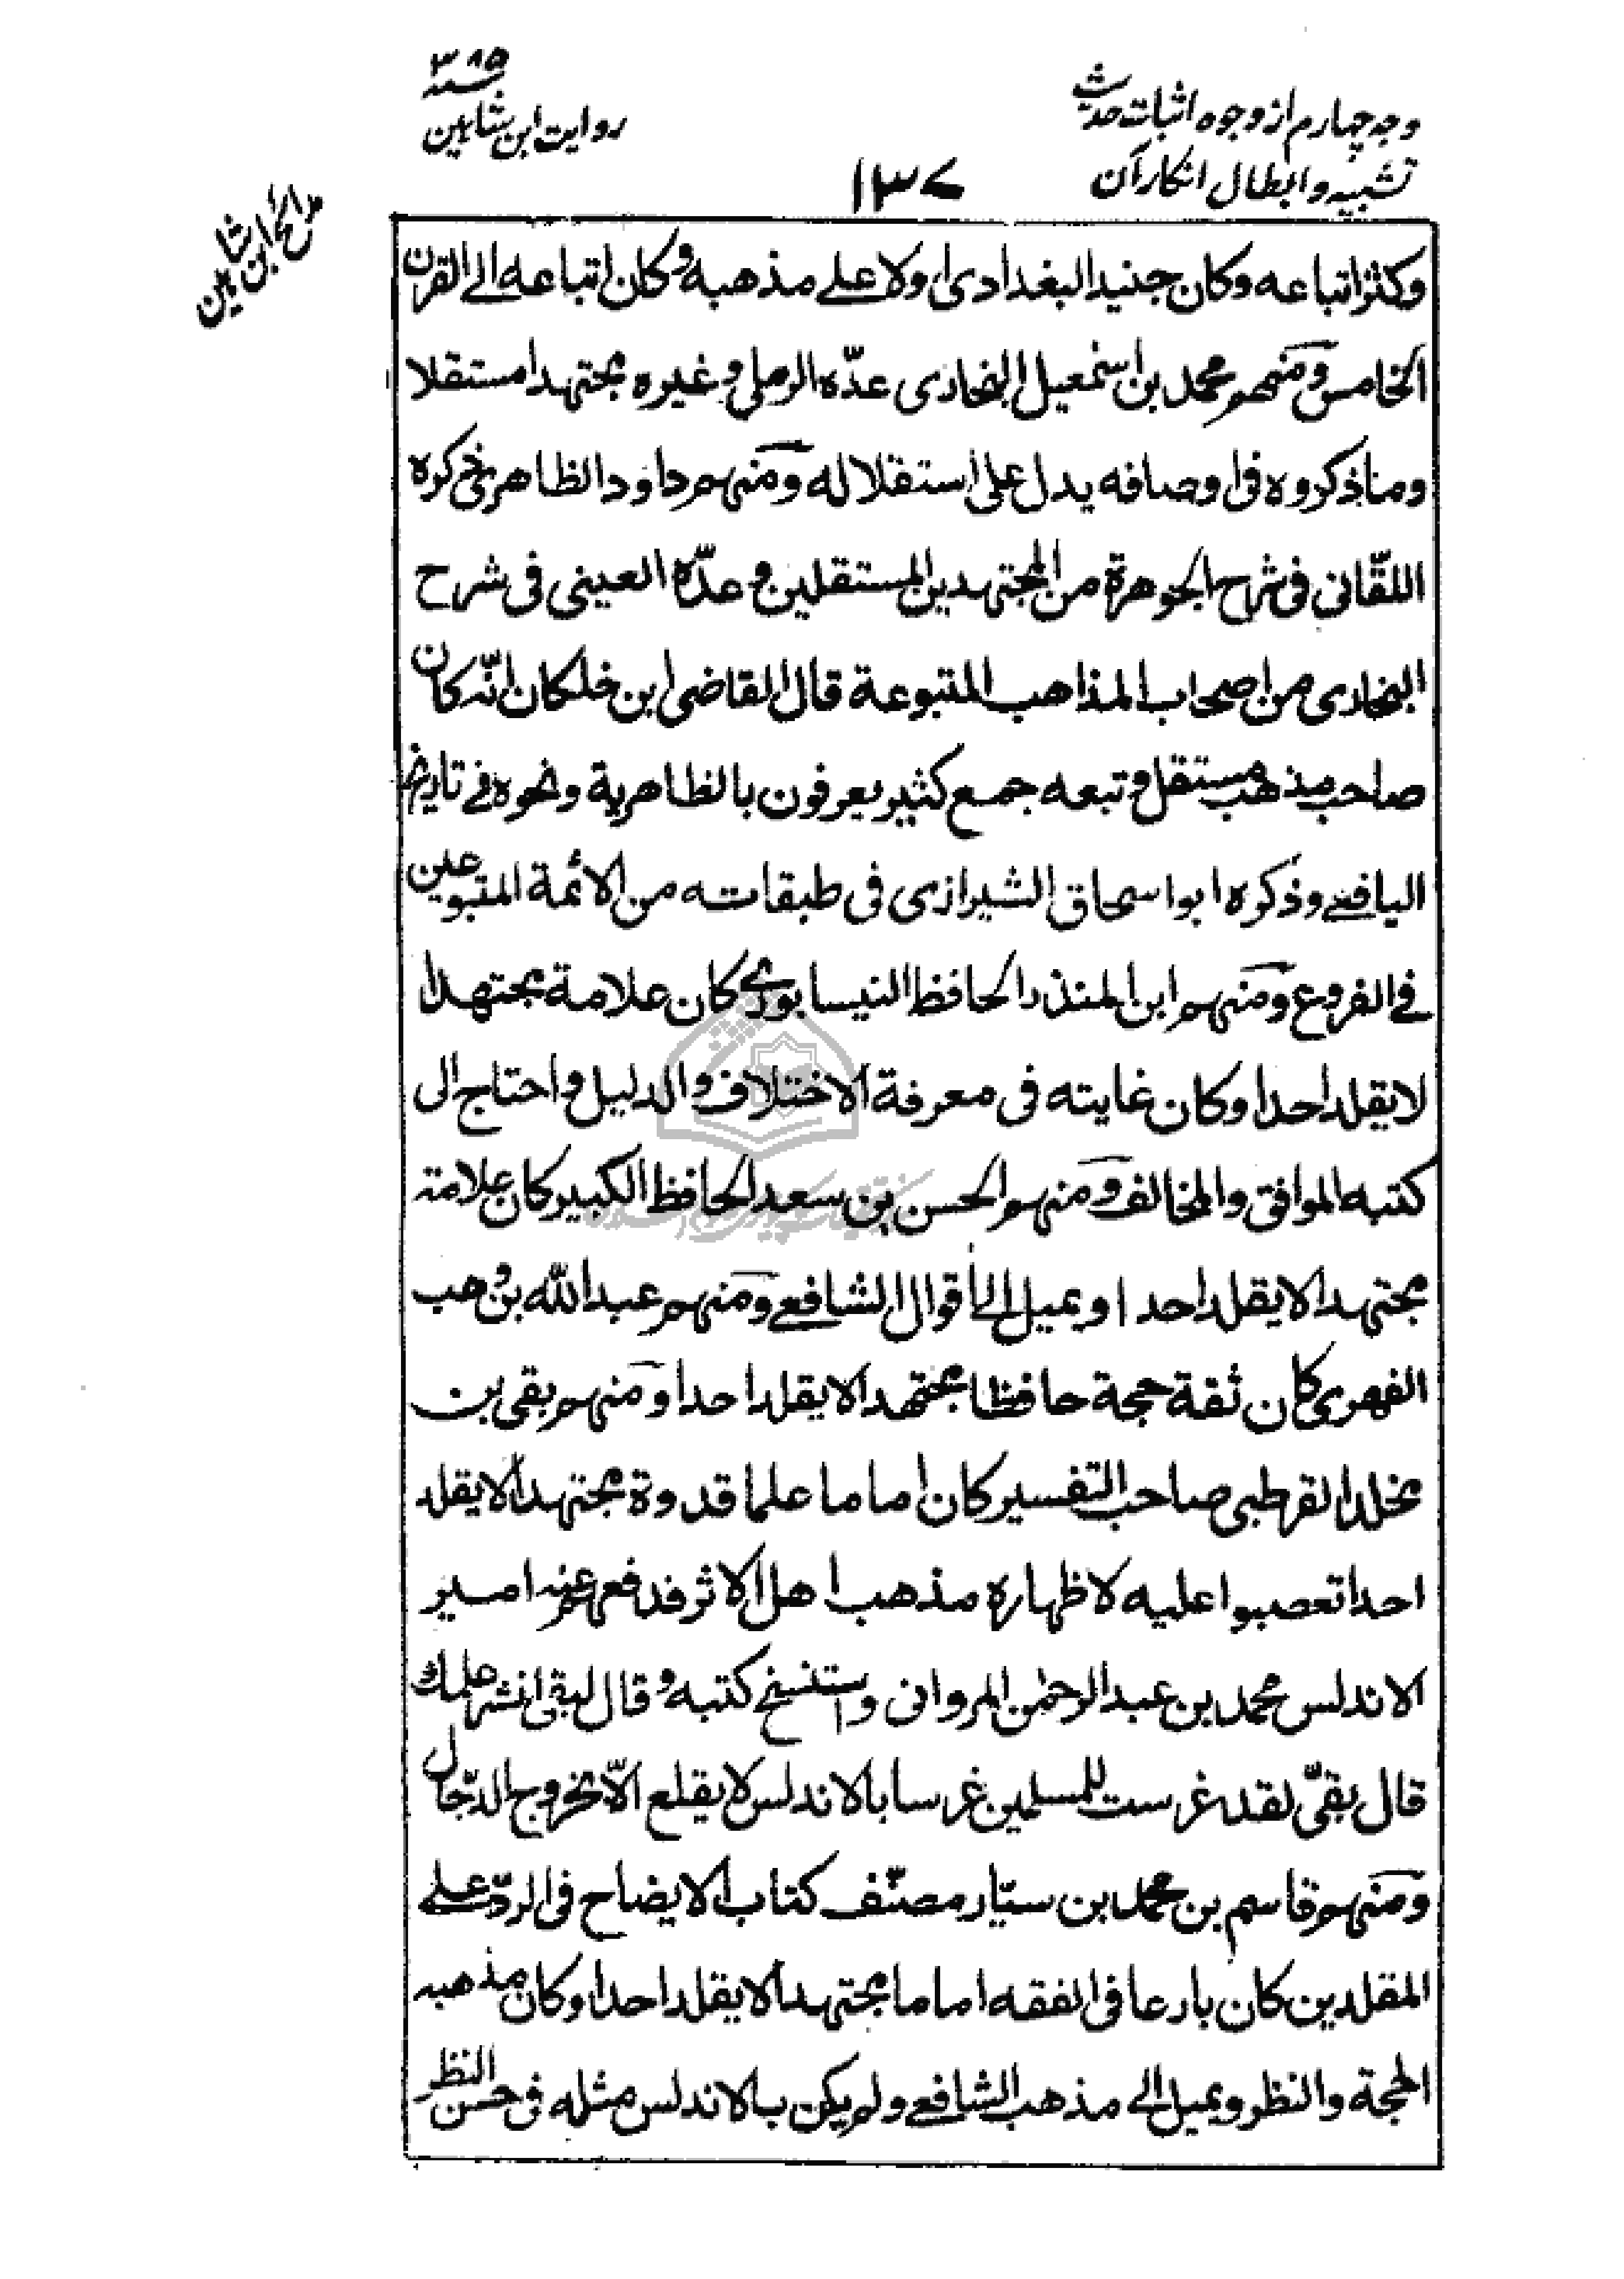 وجه چهارم از وجوه اثبات حدیث
تشبیه و ابطال انکار آن
۱۳۷
سنه ۳۸۵
روایت ابن شاهین
مدائح ابن شاهین
وكثر اتباعه وكان جنيد البغدادى اولا على مذهبه وكان اتباعه الى القرن
الخامس ومنهم محمد بن اسمعيل البخارى عدّه الرملى وغيره مجتهدا مستقلا
وما ذكروه فى اوصافه يدل على استقلاله ومنهم داود الظاهرى ذكره
اللقّانى فى شرح الجوهرة من المجتهدين المستقلين وعدّه العينى فى شرح
البخارى من اصحاب المذاهب المتبوعة قال القاضى ابن خلكان انّه كان
صاحب مذهب مستقل وتبعه جمع كثير يعرفون بالظاهرية ونحوه فى تاريخ
اليافعى وذكره ابو اسحاق الشيرازى فى طبقاته من الائمة المتبوعين
فى الفروع ومنهم ابن المنذر الحافظ النيسابورى كان علامة مجتهدا
لا يقلد احدا وكان غايته فى معرفة الاختلاف والدليل واحتاج الى
كتبه الموافق والمخالف ومنهم الحسن بن سعد الحافظ الكبير كان علامة
مجتهدا لا يقلد احدا ويميل الى أقوال الشافعى ومنهم عبد الله بن وهب
الفهرى كان ثقة حجة حافظا مجتهدا لا يقلد احدا ومنهم بقى بن
مخلد القرطبى صاحب التفسير كان اماما علما قدوة مجتهدا لا يقلد
احدا تعصبوا عليه لاظهاره مذهب اهل الاثر فدفعهم عنه امير
الاندلس محمد بن عبد الرحمٰن المروانى واستنسخ كتبه وقال لبقى انشر علمك
قال بقىّ لقد غرست للمسلمين غرسا بالاندلس لا يقلع الّا بخروج الدّجال
ومنهم قاسم بن محمد بن سيّار مصنّف كتاب الايضاح فى الردّ على
المقلدين كان بارعا فى الفقه اماما مجتهدا لا يقلد احدا وكان مذهبه
الحجة والنظر ويميل الى مذهب الشافعى ولم يكن بالاندلس مثله فى حسن النظر